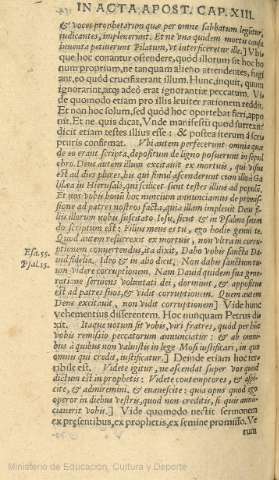 IN ACTA APOST. CAP. XIII.
& voces prophetarum quæ per omne sabbatum legitur,
iudicantes, impleuerunt. Et ne vna quidem mortis causa
inuenta petiuerunt Pilatum, vt interficeretur ille.] Vbi
que hoc conantur ostendere, quòd illorum sit hoc bo
num proprium, ne tanquam alieno attendentes, fugi
ant, eo quòd crucifixerant illum. Hunc, inquit, quum
ignorarint, atque adeò erat ignorantiæ peccatum. Vi
de quomodo etiam pro illis leuiter rationem reddit.
Et non hoc solum, sed quòd hoc oportebat fieri, appo
nit. Et ne quis dicat, Vnde manifesti quòd surrexit?
dicit etiam testes illius esse: & postea iterum à scri
pturis confirmat. Vbi autem perfecerunt omnia quæ
de eo erant scripta, depositum de ligno posuerunt in sepul
chro. Deus autem illum excitauit ex mortuis, qui visus
est ad dies plures, his qui simul ascenderunt cum illo à Ga
lilæa in Hierusalem, qui scilicet sunt testes illius ad populum.
Et nos vobis bonum hoc nuncium annunciamus de promis
sione ad patres nostros facta, quia illam impleuit Deus fi
liis illorum vobis suscitato Iesu, sicut & in Psalmo secun
do scriptum est: Filius meus es tu, ego hodie genui te.
Quòd autem resurrexit ex mortuis, non vltrà in corru
ptionem conuertendus, ita dixit, Dabo vobis sancta Da
uid fidelia. Ideo & in alio dicit, Non dabis sanctum tu
um videre corruptionem. Nam Dauid quidem sua gene
ratione seruiens voluntati dei, dormiuit, & appositus
est ad patres suos, & vidit corruptionem. Quem autem
Deus excitauit, non vidit corruptionem.] Vide hunc
vehementius disserentem. Hoc nunquam Petrus di
xit. Itaque notum sit vobis, viri fratres, quòd per hunc
vobis remissio peccatorum annunciatur: & ab omni
bus à quibus non valuistis in lege Mosi iustificari, in quo
omnis qui credit, iustificatur.] Deinde etiam hoc ter
ribile est. Videte igitur, ne ascendat super vos quod
dictum est in prophetis: Videte contemptores, & aspi
cite, & admiremini, & euanescite: quia opus quod ego
operor in diebus vestris, quod non creditis, si quis annu
ciauerit vobis.] Vide quomodo nectit sermonem
ex præsentibus, ex prophetis, ex semine promisso. Ve
rum
Esa. 55.
Psal. 15.
Ministerio de Educación, Cultura y Deporte